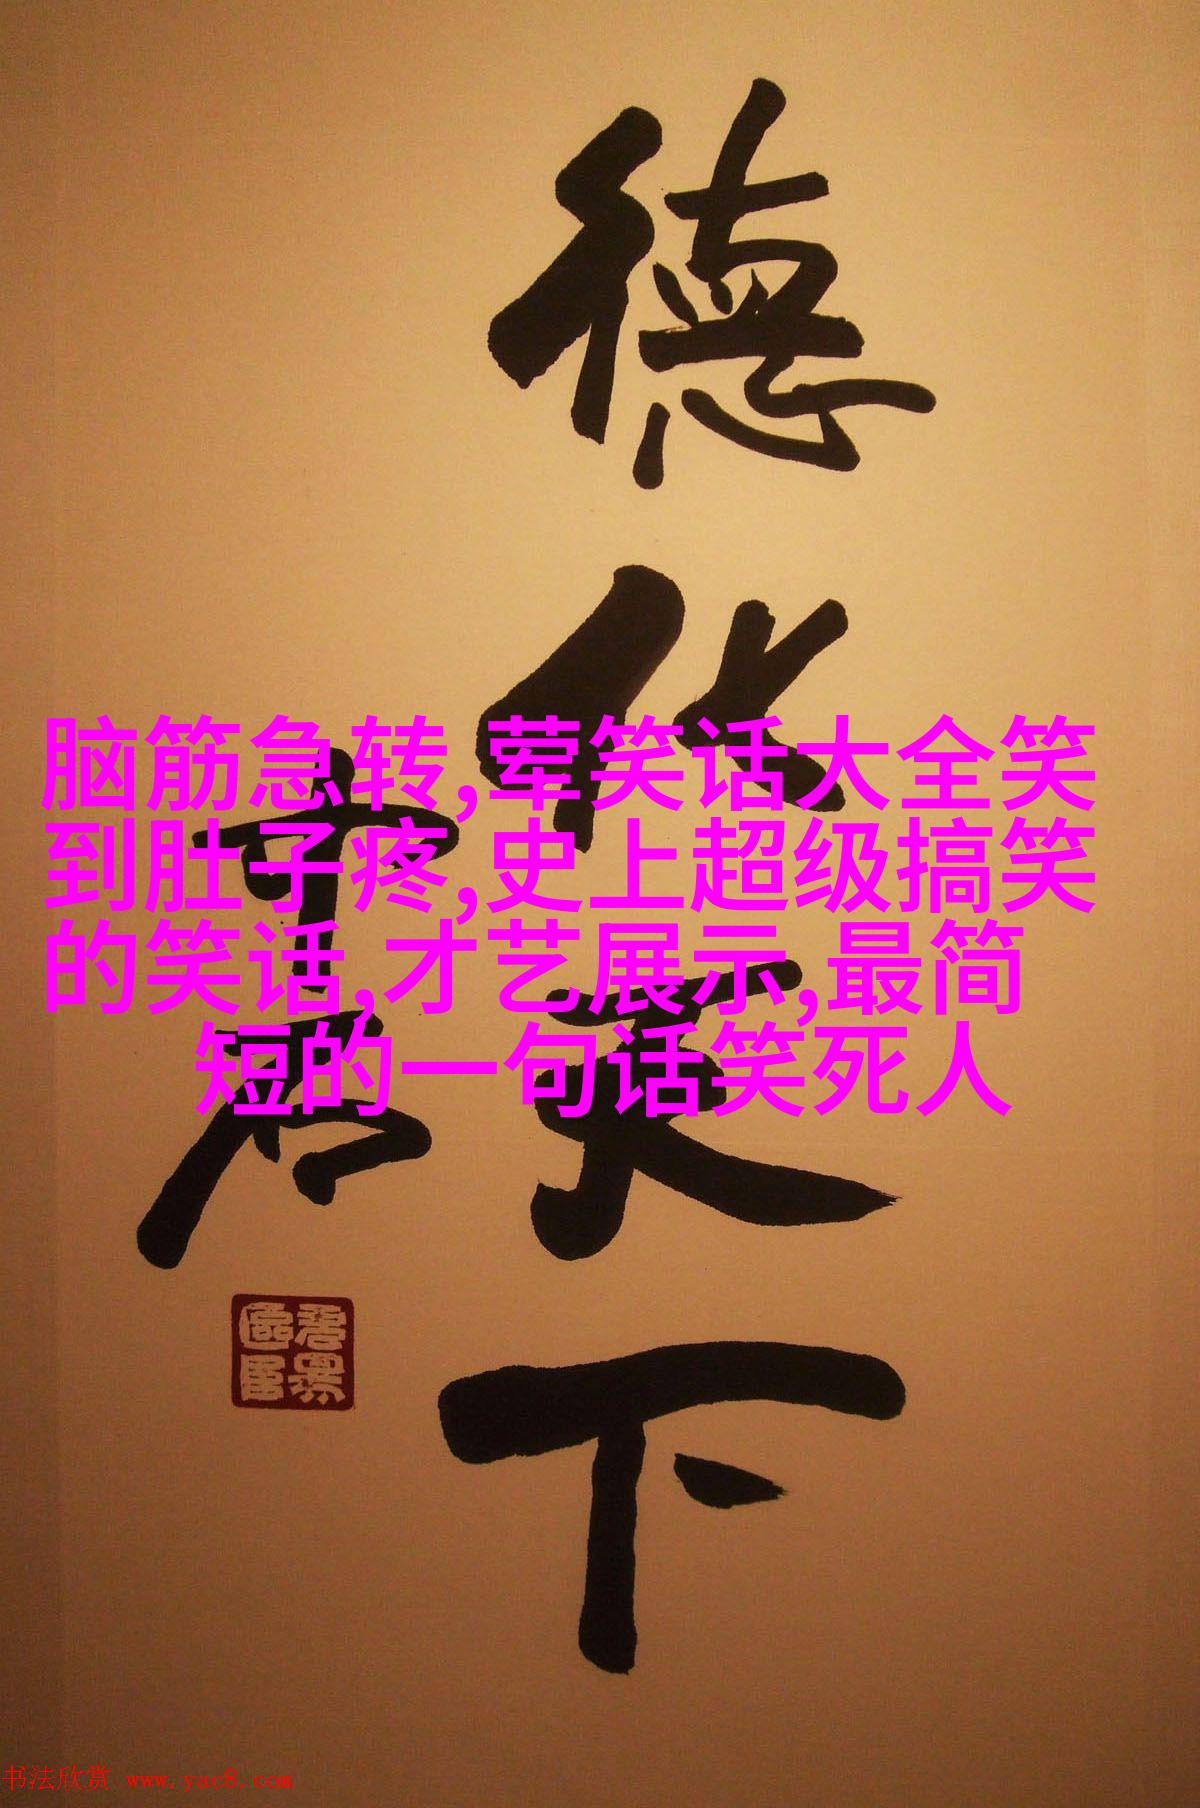 德化天下
脑筋急转,荤笑话大全笑
到肚子疼,史上超级搞笑
的笑话,才艺展示,最简
短的一句话笑死人
书法欣赏 www.yac8.com